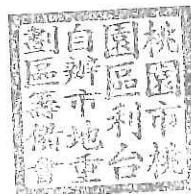 桃園市桃
園區利台
自辦市地重
劃區籌備會